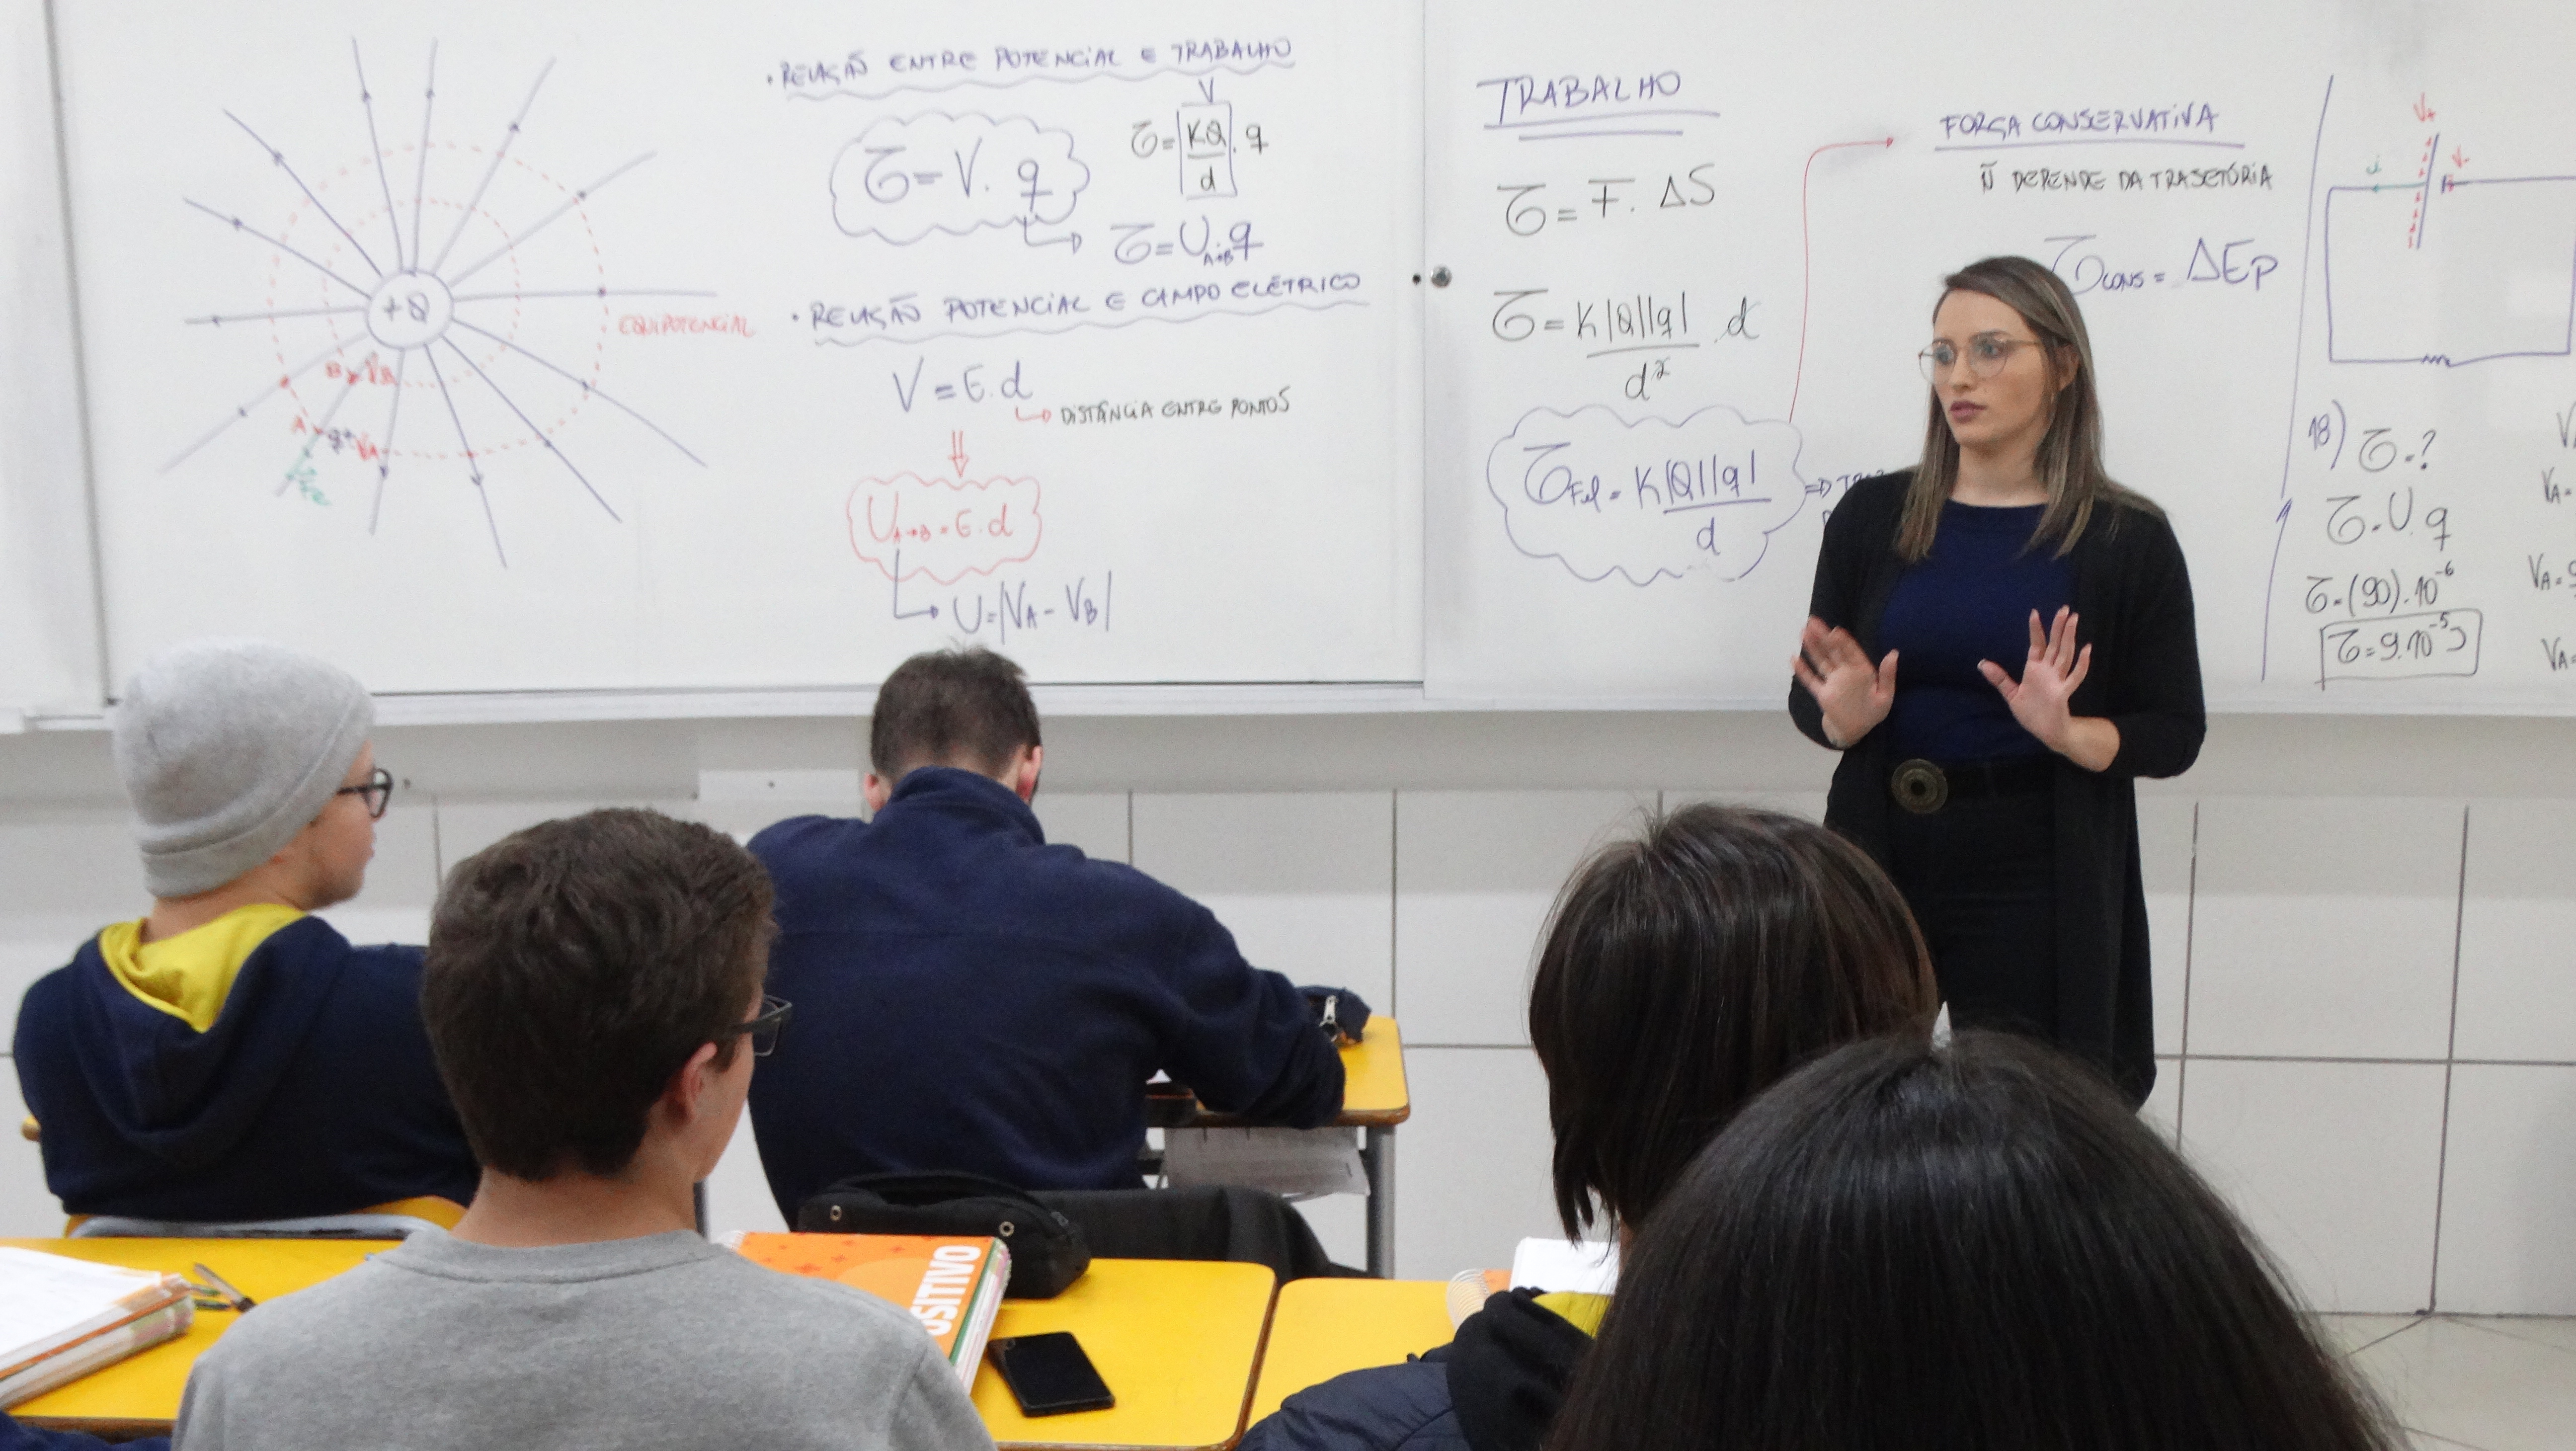 +Q
EQUIPOTENCIAL
B VB
A q+ VA
• RELAÇÃO ENTRE POTENCIAL E TRABALHO
V
τ = V. q
τ = KQ/d . q
τ = U A→B q
• RELAÇÃO POTENCIAL E CAMPO ELÉTRICO
V = E.d
↳ DISTÂNCIA ENTRE PONTOS
⇓
U A→B = E.d
↳ U = |VA - VB|
TRABALHO
τ = F. ΔS
τ = K|Q||q|/d² . d
τ Fel = K|Q||q|/d ⇒
FORÇA CONSERVATIVA
Ñ DEPENDE DA TRAJETÓRIA
τ CONS = ΔEp
i
18) τ = ?
τ = U. q
τ = (90).10⁻⁶
τ = 9.10⁻⁵J
VA =
VA =
VA =
OSITIVO